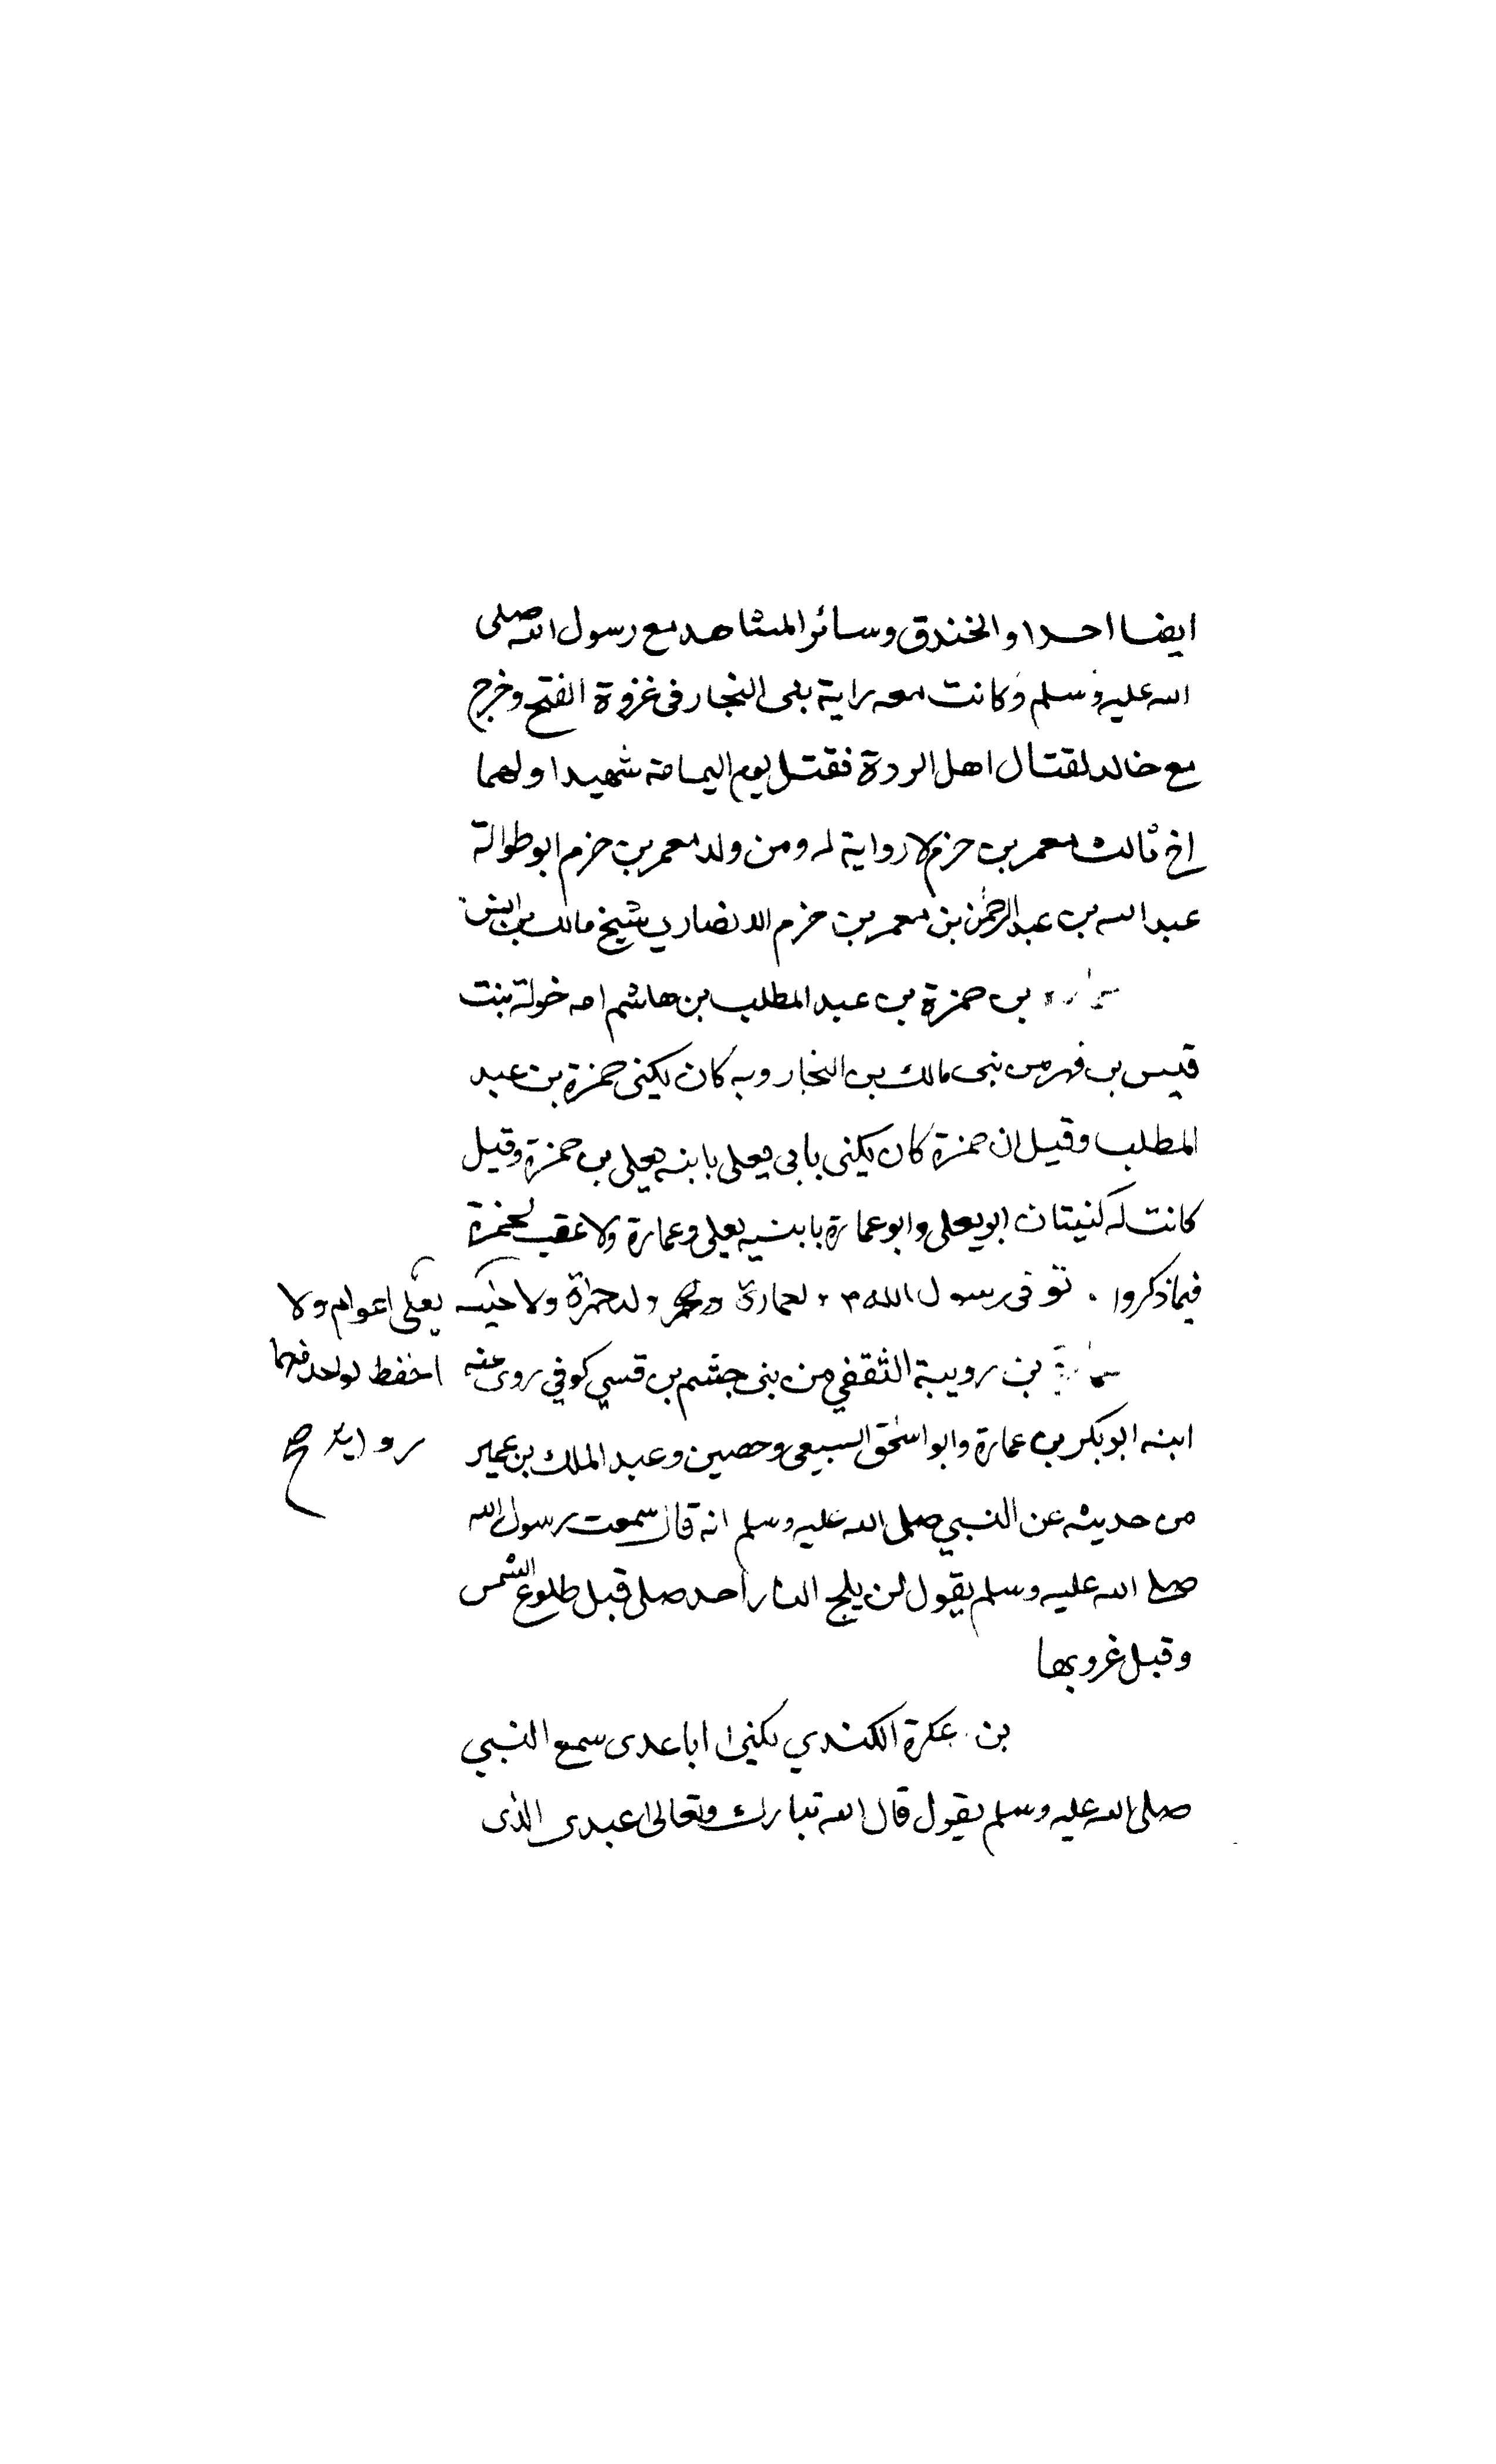 ايضا احدا والخندق وسائر المشاهد مع رسول الله صلى
الله عليه وسلم وكانت معه راية بنى النجار فى غزوة الفتح وخرج
مع خالد لقتال اهل الردة فقتل يوم اليمامة شهيدا ولهما
اخ ثالث معمر بن حزم لا رواية له ومن ولد معمر بن حزم ابو طوالة
عبد الله بن عبد الرحمن بن معمر بن حزم الانصاري شيخ مالك بن انس
بن حمزة بن عبد المطلب بن هاشم امه خولة بنت
قيس بن فهر من بنى مالك بن النجار وبه كان يكنى حمزة بن عبد
المطلب وقيل ان حمزة كان يكنى بابى يعلى بابنه يعلى بن حمزة وقيل
كانت له كنيتان ابو يعلى وابو عمارة بابنيه يعلى وعمارة ولا عقب لحمزة
فيما ذكروا . توفى رسول الله ولعمارة ولاخيه يعلى اعوام ولا
احفظ لواحد منهما
رواية صح
بن رويبة الثقفي من بنى جشم بن قسي كوفي روى عنه
ابنه ابو بكر بن عمارة وابو اسحق السبيعى وحصين وعبد الملك بن عمير
من حديثه عن النبي صلى الله عليه وسلم انه قال سمعت رسول الله
صلى الله عليه وسلم يقول لن يلج النار احد صلى قبل طلوع الشمس
وقبل غروبها
بن عكرة الكندي يكنى ابا عدى سمع النبي
صلى الله عليه وسلم يقول قال الله تبارك وتعالى عبدى الذى